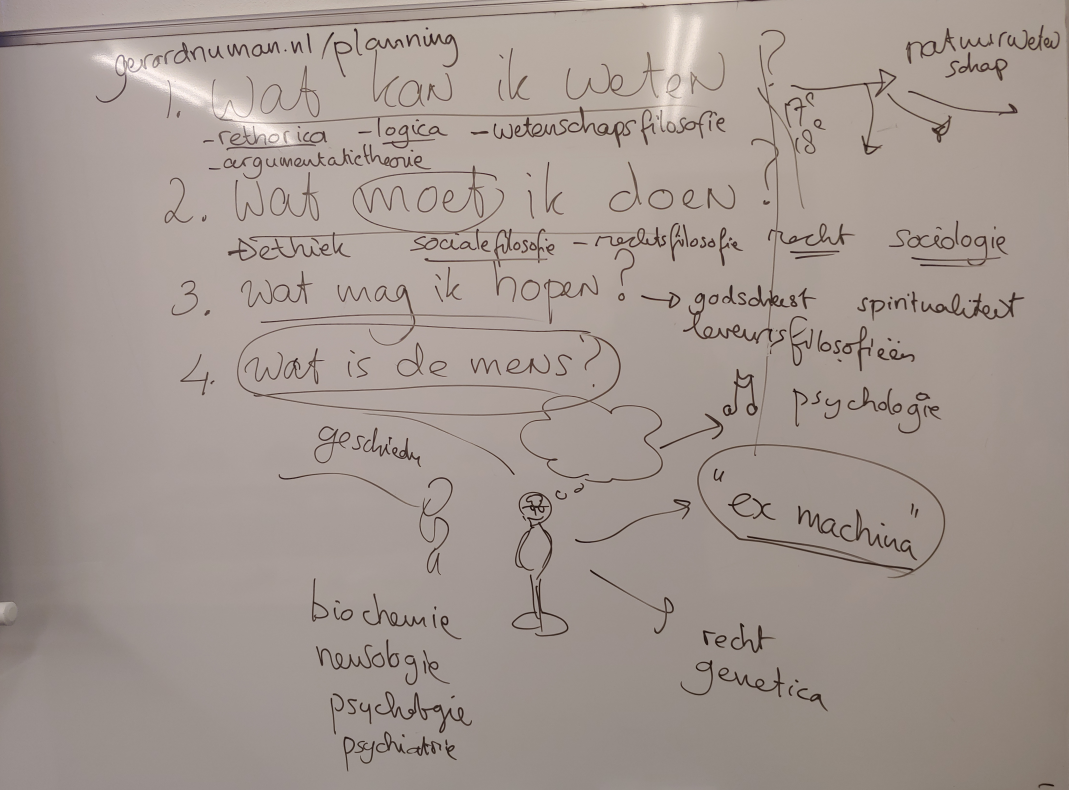 gerardnuman.nl/planning
1. Wat kan ik weten ?
natuurweten
schap
17e
18e
- rethorica - logica - wetenschapsfilosofie
- argumentatietheorie
2. Wat moet ik doen ?
ethiek sociale filosofie - rechtsfilosofie recht sociologie
3. wat mag ik hopen ? → godsdienst spiritualiteit
levensfilosofieën
4. Wat is de mens ?
psychologie
geschiedn
"ex machina"
biochemie
neurologie
psychologie
psychiatrie
recht
genetica